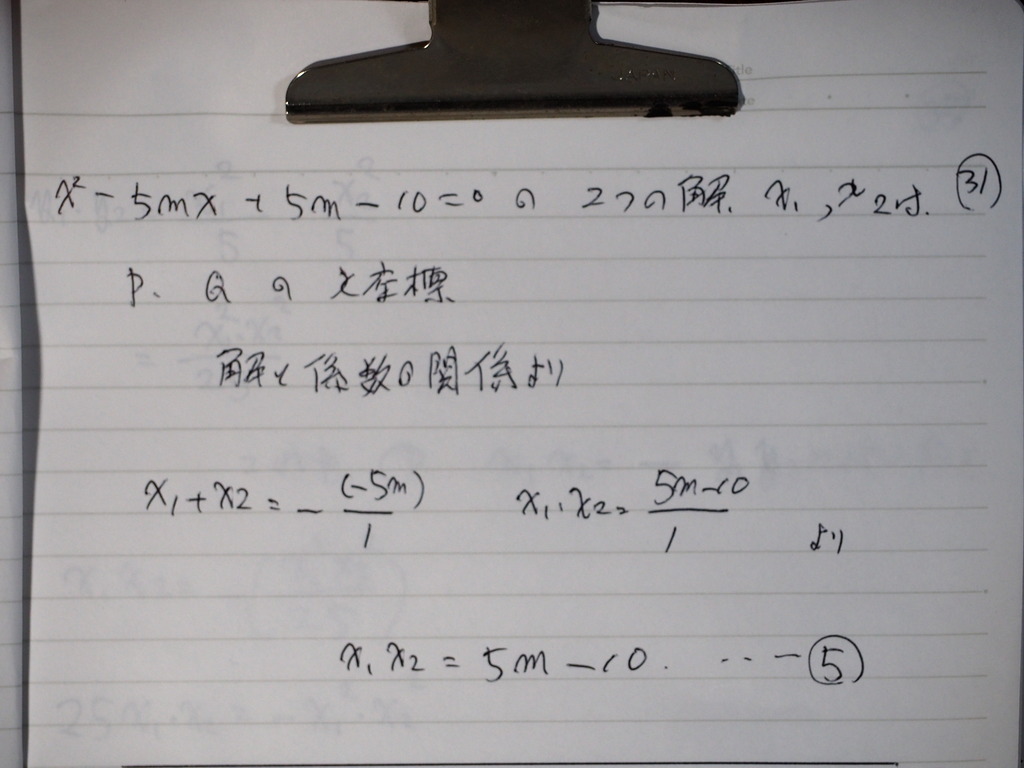 JAPAN
x² - 5mx + 5m - 10 = 0 の 2つの解 x₁, x₂は. ㉛
P. Q の x座標
解と係数の関係より
x₁ + x₂ = - (-5m)/1 x₁・x₂ = 5m-10/1 より
x₁ x₂ = 5m - 10. ‥‥⑤